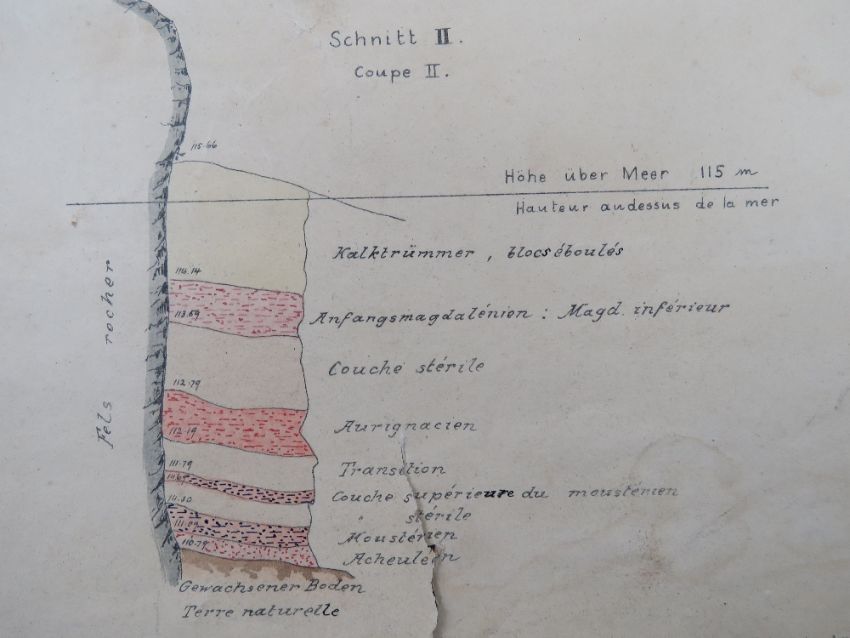 Schnitt II.
Coupe II.
115.66
Höhe über Meer 115 m
Hauteur audessus de la mer
Kalktrümmer, blocs éboulés
114.14
113.69
Anfangsmagdalénien : Magd. inférieur
Fels rocher
Couche stérile
112.79
112.19
Aurignacien
111.79
Transition
Couche supérieure du moustérien
stérile
Moustérien
110.79
Acheuléen
Gewachsener Boden
Terre naturelle